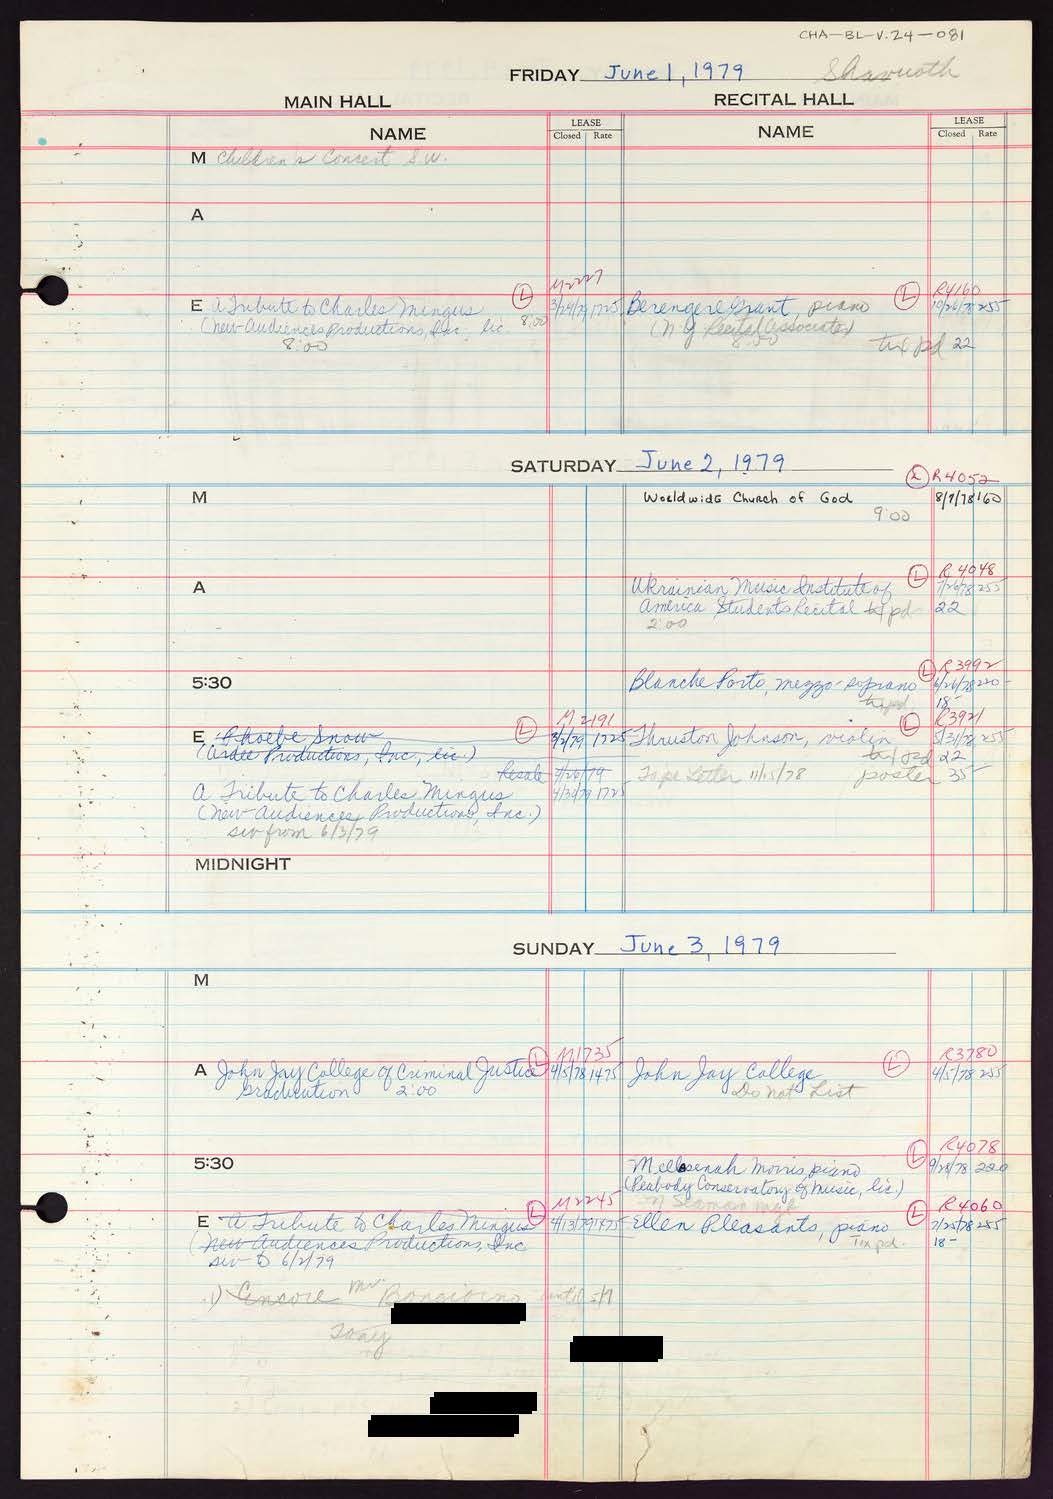 CHA-BL-V.24-081
FRIDAY June 1, 1979 Shavuoth
MAIN HALL RECITAL HALL
NAME LEASE Closed Rate NAME LEASE Closed Rate
M Children's Concert S.W.
A
M2227 R4160
E A Tribute to Charles Mingus L 8:00 3/29/79 1725 Berengere Grant, piano L 10/26/78 255
(New Audiences Productions, Inc. lic. (NY Recital Associates)
8:00 8:00 tix pd 22
SATURDAY June 2, 1979
L R4052
M Worldwide Church of God 8/7/78 160
9:00
L R4048
A Ukrainian Music Institute of 7/26/78 255
America Students Recital tx pd 22
2:00
L R3992
5:30 Blanche Porto, mezzo-soprano 6/26/78 220-
tx pd. 18-
M2191 R3921
E Phoebe Snow L 3/2/79 1725 Thruston Johnson, violin L 5/31/78 255
(Ardee Productions, Inc, lic.) tx pd 22
Resale 4/26/79 Tape Letter 11/15/78 poster 35-
A Tribute to Charles Mingus 4/30/79 1725
(New Audiences Productions, Inc.)
sw from 6/3/79
MIDNIGHT
SUNDAY June 3, 1979
M
L M1735 R3780
A John Jay College of Criminal Justice 4/5/78 1475 John Jay College L 4/5/78 255
Graduation 2:00 Do Not List
L R4078
5:30 Mellasenah Morris, piano 9/28/78 220
(Peabody Conservatory of Music, lic.)
M2245 R4060
E A Tribute to Charles Mingus L 4/13/79 1475 Ellen Pleasants, piano L 7/25/78 255
(New Audiences Productions, Inc Tix pd. 18-
sw to 6/2/79
1) Encore Mr. Bongiorno until 5/9
Tony